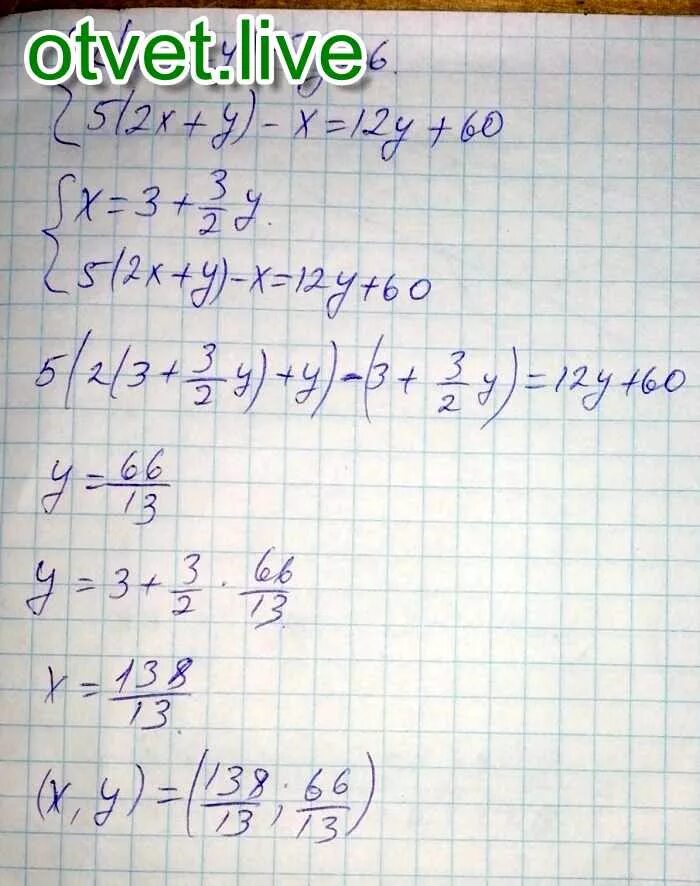 otvet.live
6.
5(2x+y)-x=12y+60
x=3+3/2 y.
5(2x+y)-x=12y+60
5(2(3+3/2 y)+y)-(3+3/2 y)=12y+60
y=66/13
y=3+3/2·66/13
x=138/13
(x,y)=(138/13;66/13)